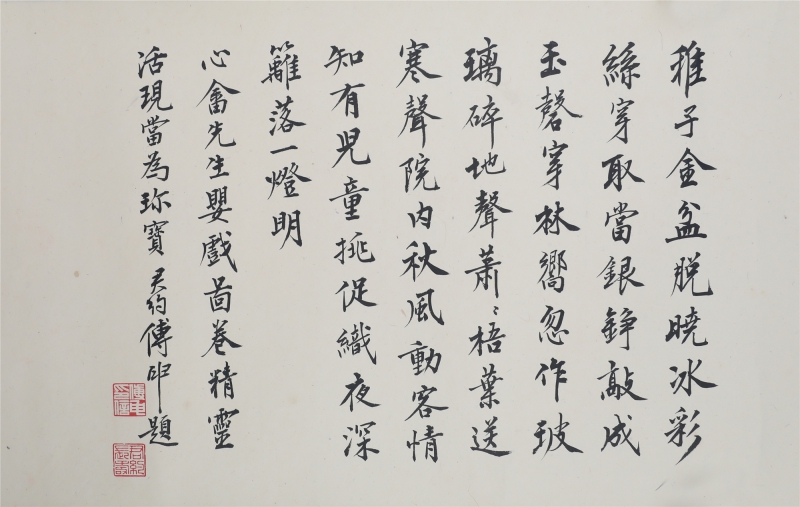 稚子金盆脱曉冰彩
絲穿取當銀錚敲成
玉磬穿林嚮忽作玻
璃碎地聲蕭〻梧葉送
寒聲院内秋風動客情
知有兒童挑促織夜深
籬落一燈明
心畬先生嬰戲啚卷精靈
活現當為珍寶 君約傅申題